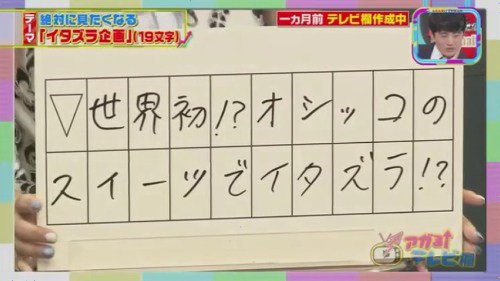 テーマ
絶対に見たくなる
「イタズラ企画」(19文字)
一ヵ月前 テレビ欄作成中
▽世界初!?オシッコの
スイーツでイタズラ!?
アガる↑
テレビ欄